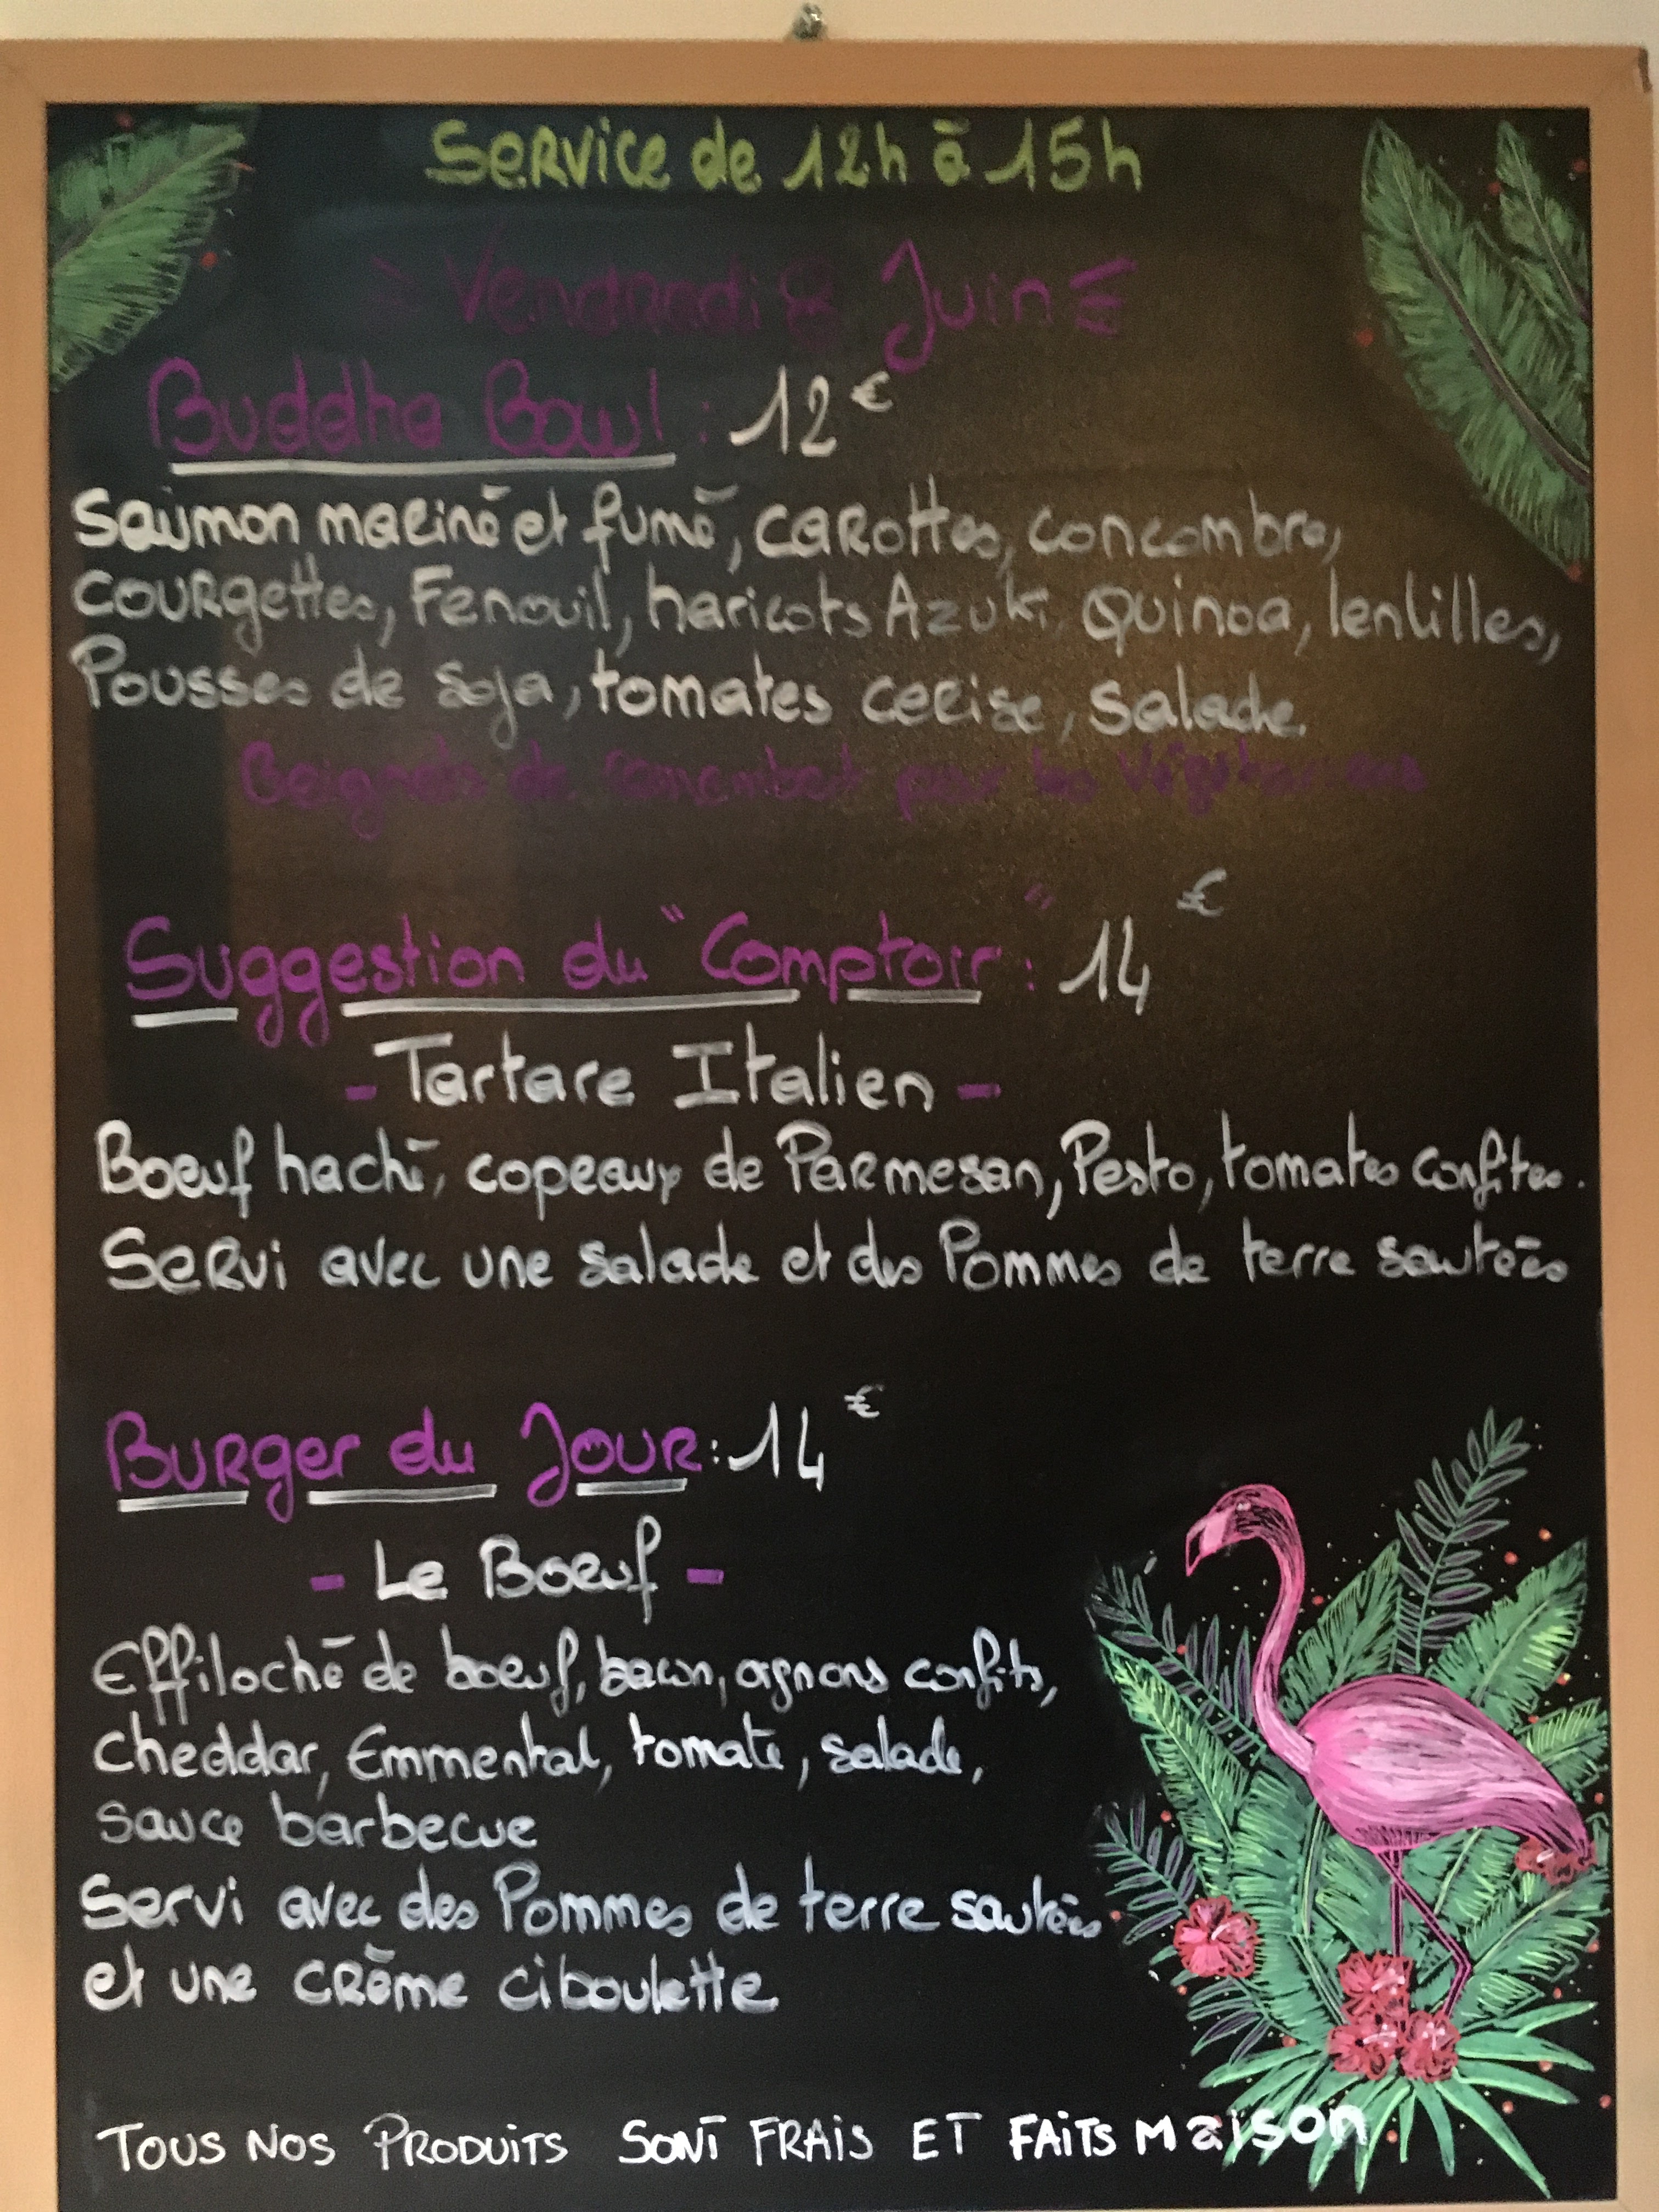 Service de 12h à 15h
Vendredi 8 Juin
Buddha Bowl : 12€
Saumon mariné et fumé, carottes, concombre,
courgettes, Fenouil, haricots Azuki, Quinoa, lentilles,
Pousses de soja, tomates cerise, Salade.
Beignets de camembert pour les Végétariens
Suggestion du "Comptoir" : 14€
- Tartare Italien -
Boeuf haché, copeaux de Parmesan, Pesto, tomates confites.
Servi avec une salade et des Pommes de terre sautées
Burger du Jour : 14€
- Le Boeuf -
Effiloché de boeuf, bacon, oignons confits,
Cheddar, Emmental, tomate, salade,
sauce barbecue
Servi avec des Pommes de terre sautées
et une crème ciboulette
TOUS NOS PRODUITS SONT FRAIS ET FAITS MAISON